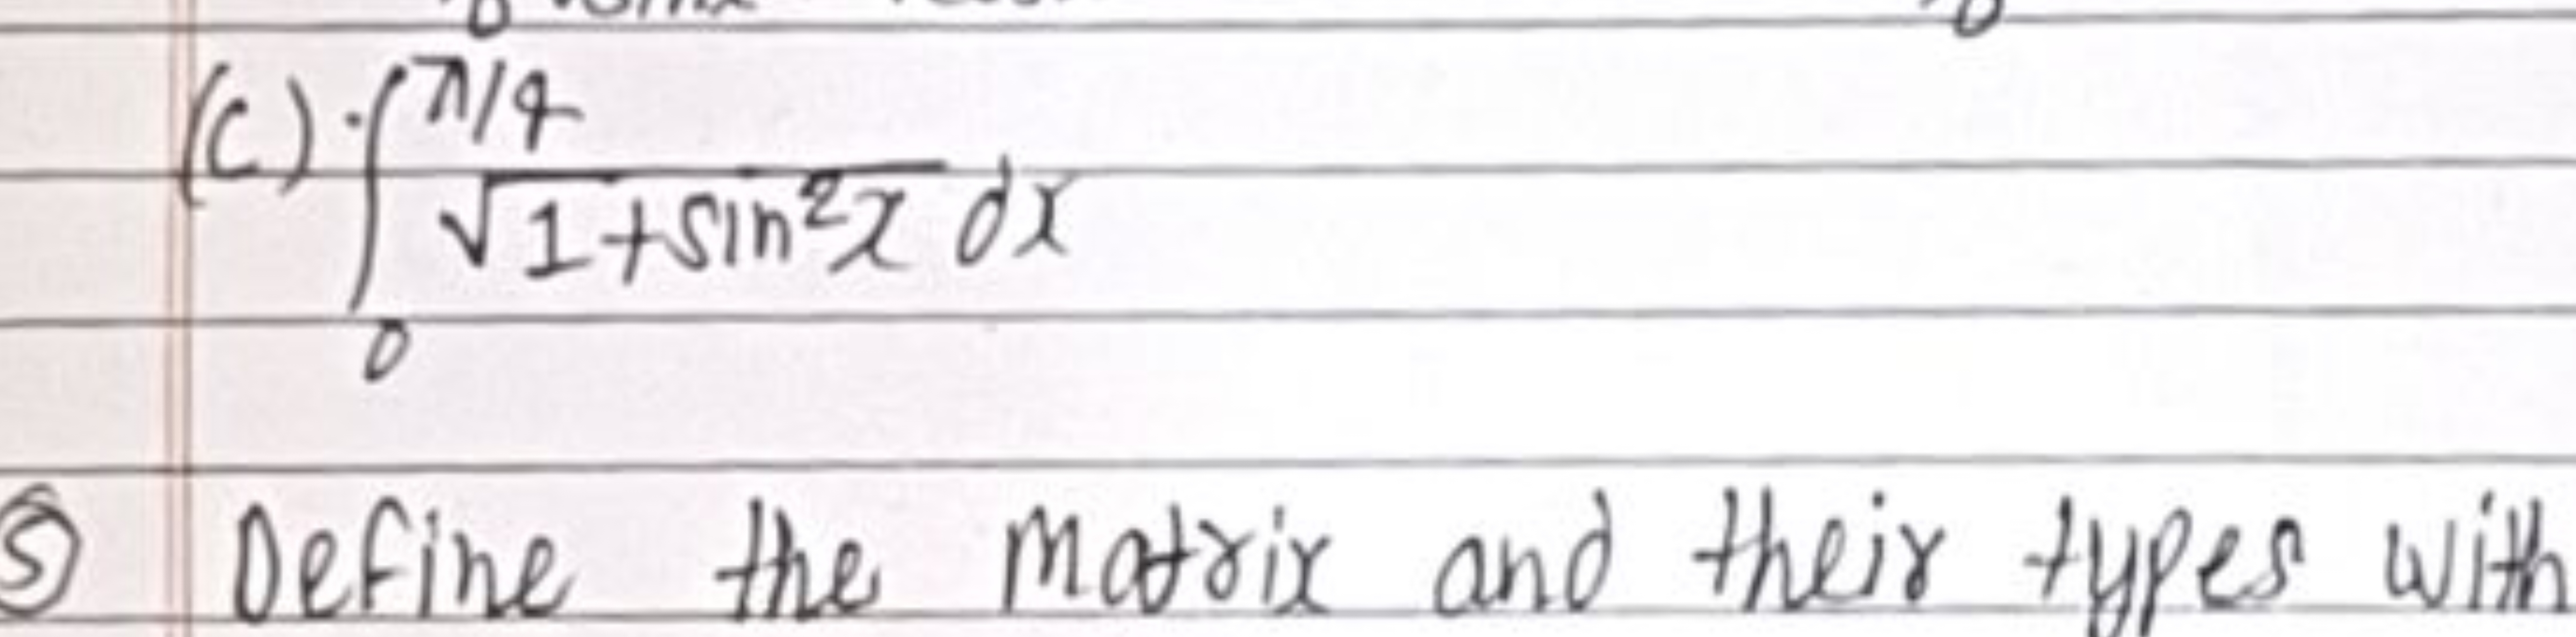 (C) ∫₀^π/4 √1+sin²x dx
⑤ Define the Matrix and their types with